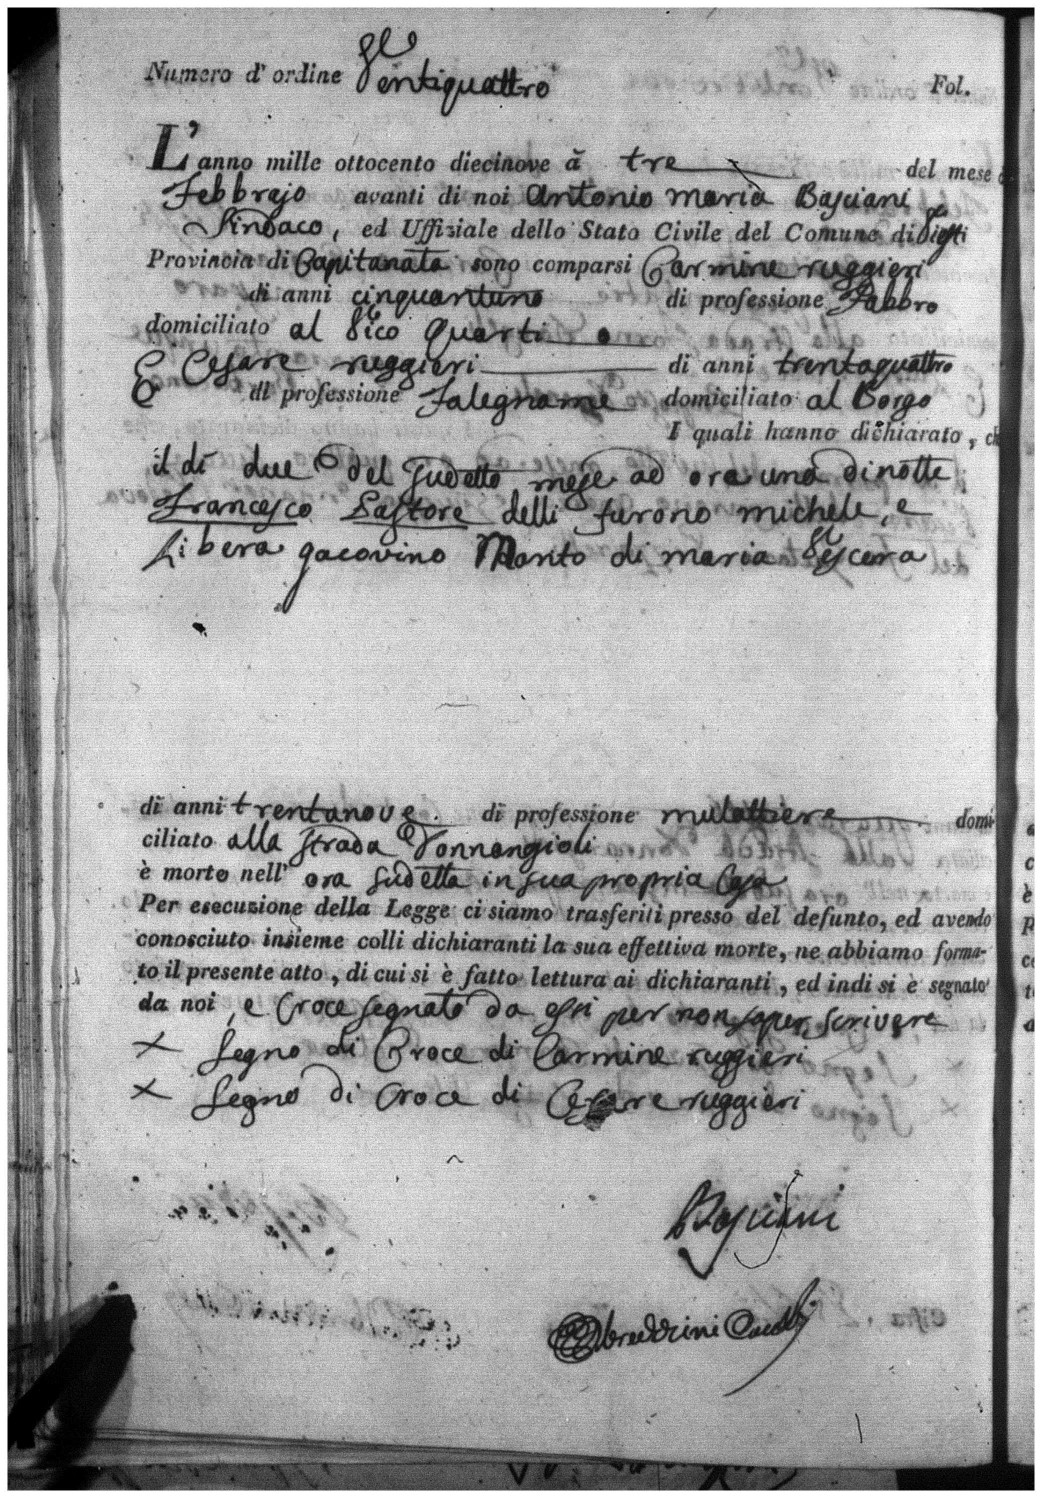 Numero d' ordine Ventiquattro
Fol.
L' anno mille ottocento diecinove à tre del mese
Febbrajo avanti di noi Antonio maria Basciani
Sindaco, ed Uffiziale dello Stato Civile del Comune di Viesti
Provincia di Capitanata sono comparsi Carmine ruggieri
di anni cinquantuno di professione Fabbro
domiciliato al Vico Quarti
E Cesare ruggieri di anni trentaquattro
di professione Falegname domiciliato al Borgo
I quali hanno dichiarato, ch
il di due del sudetto mese ad ora una di notte
Francesco Pastore delli furono michele, e
Libera gacovino Marito di maria Vescera
di anni trentanove di professione mulattiere domi-
ciliato alla strada Vonnangioli
è morto nell' ora sudetta in sua propria Casa
Per esecuzione della Legge ci siamo trasferiti presso del defunto, ed avendo
conosciuto insieme colli dichiaranti la sua effettiva morte, ne abbiamo forma-
to il presente atto, di cui si è fatto lettura ai dichiaranti, ed indi si è segnato
da noi, e Croce segnato da essi per non saper scrivere
+ Segno di Croce di Carmine ruggieri
+ Segno di Croce di Cesare ruggieri
Basciani